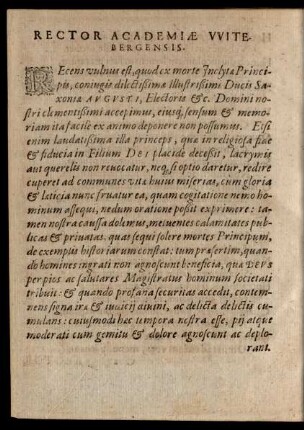 RECTOR ACADEMIÆ VVITE-
BERGENSIS.
REcens vulnus est, quod ex morte Inclytæ Princi-
pis, coniugis dilectissimæ Illustrissimi Ducis Sa-
xoniæ AVGVSTI, Electoris &c. Domini no-
stri clementissimi accepimus, eiusq; sensum & memo-
riam ita facile ex animo deponere non possumus. Etsi
enim laudatissima illa princeps, quæ in religiosa fide
& fiducia in Filium DEI placide decessit, lacrymis
aut querelis non reuocatur, neq; si optio daretur, redire
cuperet ad communes vitæ huius miserias, cum gloria
& læticia nunc fruatur ea, quam cogitatione nemo ho-
minum assequi, nedum oratione possit exprimere: ta-
men nostra caussa dolemus, metuentes calamitates publi-
cas & priuatas, quæ sequi solere mortes Principum,
de exemplis historiarum constat: tum præsertim, quan-
do homines ingrati non agnoscunt beneficia, quæ DEVS
per pios ac salutares Magistratus hominum societati
tribuit: & quando profana securitas accedit, contem-
nens signa iræ & iudicij diuini, ac delicta delictis cu-
mulans: cuiusmodi hæc tempora nostra esse, pij atque
moderati cum gemitu & dolore agnoscunt ac deplo-
rant.